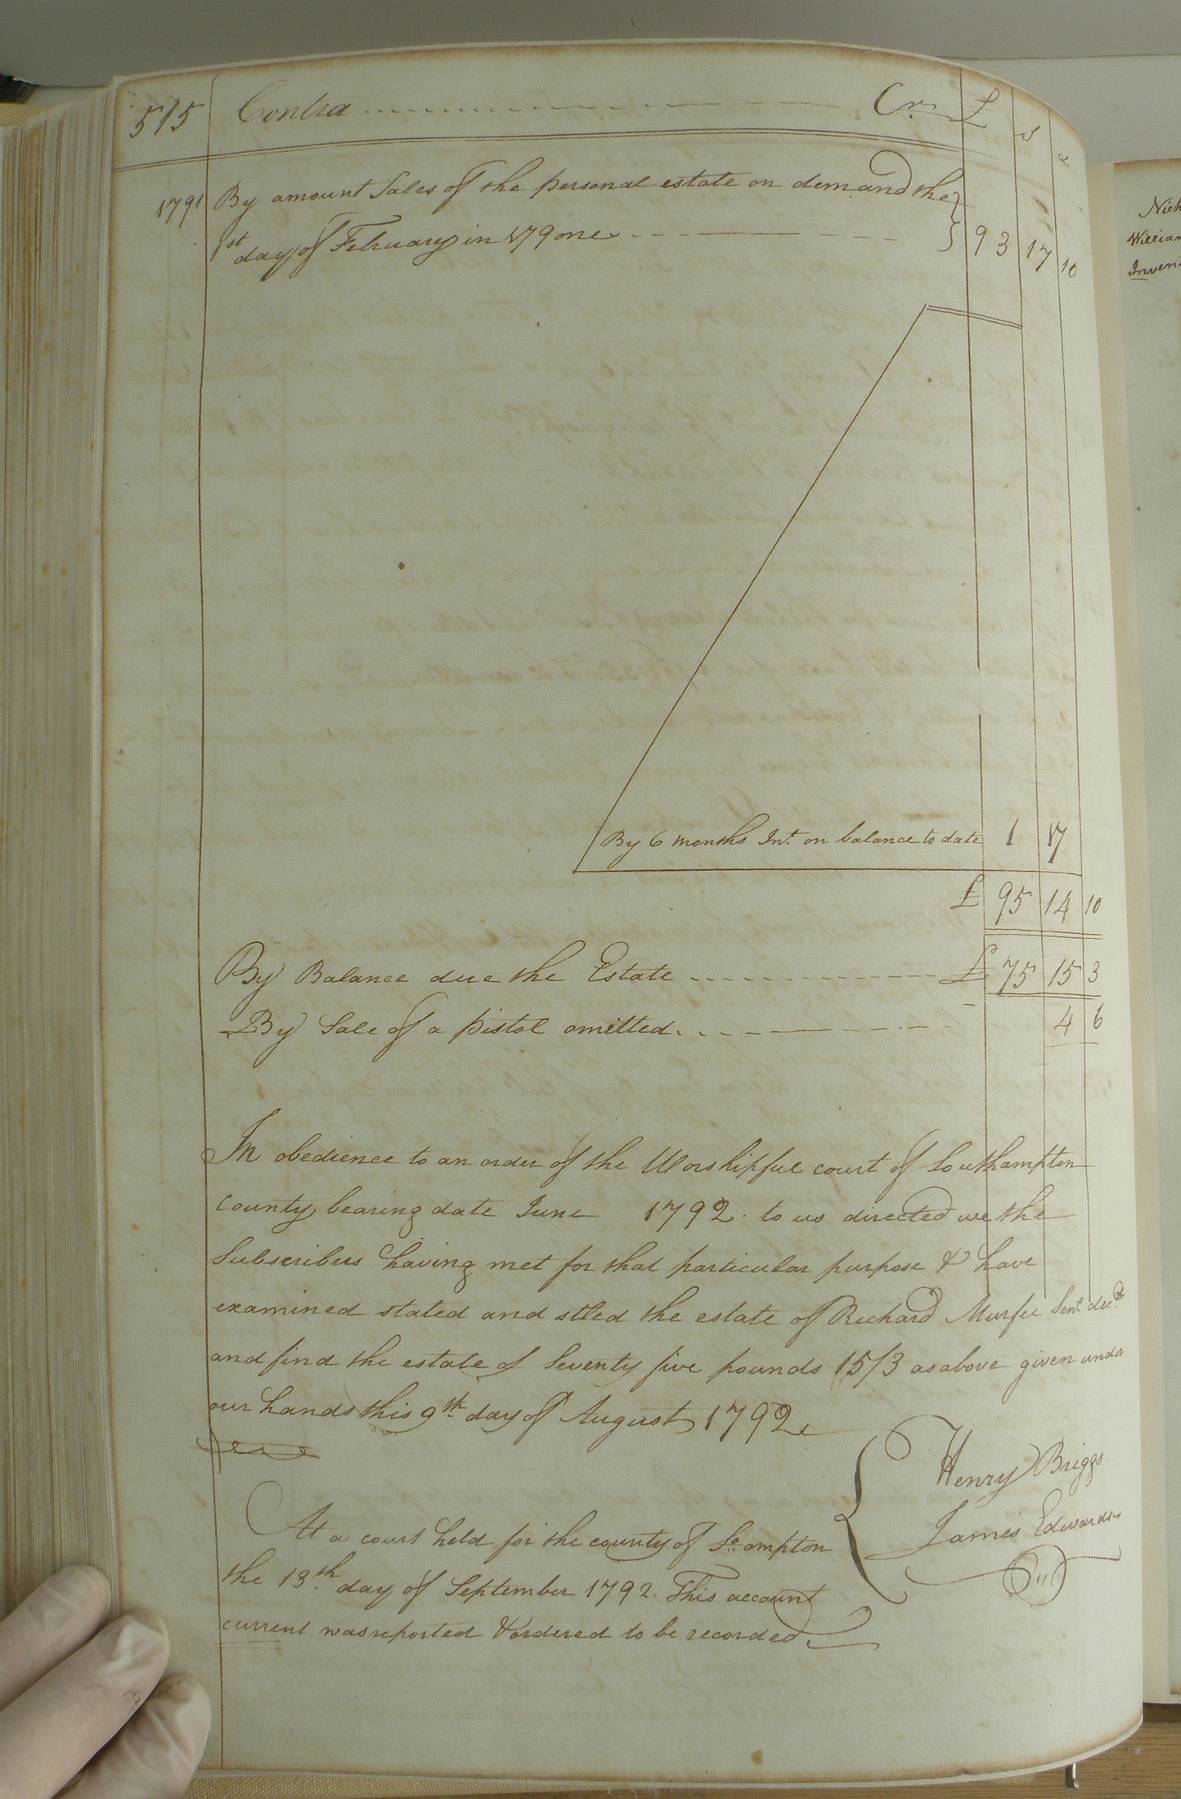 515 Contra Cr. £ s d
1791 By amount Sales of the personal estate on demand the
1st day of February in 179one 93 17 10
By 6 months Int. on balance to date 1 17
£ 95 14 10
By Balance due the Estate £ 75 15 3
By Sale of a pistol omitted 4 6
In obedience to an order of the Worshipful court of Southampton
county bearing date June 1792. to us directed we the
Subscribers having met for that particular purpose & have
examined stated and stled the estate of Richard Murfee Senr. decd
and find the estate of Seventy five pounds 15/3 as above given under
our hands this 9th day of August 1792
Henry Briggs
James Edwards
At a court held for the county of So:ampton
the 13th day of September 1792. This account
current was reported & ordered to be recorded
Nich
William
Inven